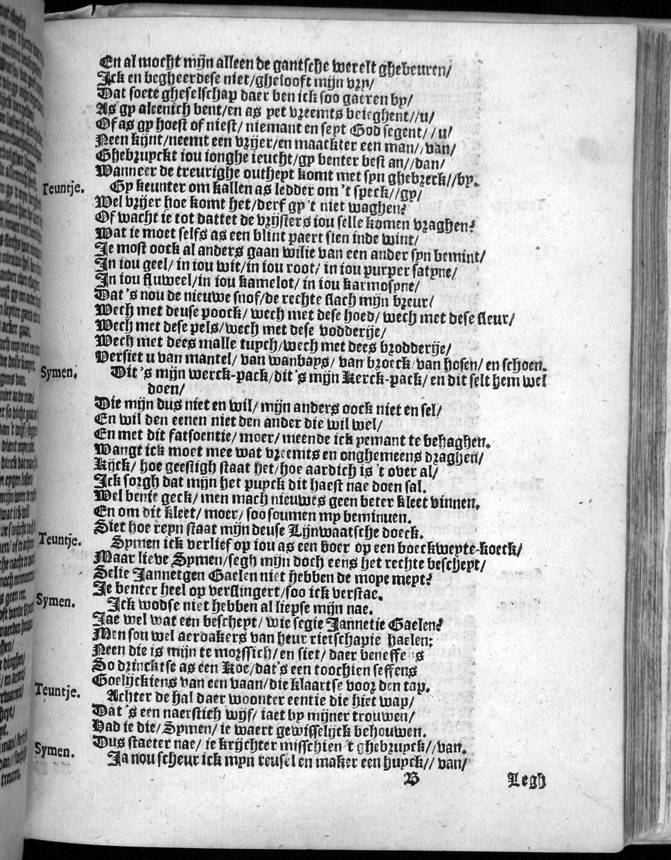 En al mocht mijn alleen de gantsche werelt ghebeuren/
Ick en begheerdese niet/ghelooft mijn vry/
Dat soete gheselschap daer ben ick soo gaeren by/
As gy aleenich bent/en as yet vreemts bejeghent//u/
Of as gy hoest of niest/ niemant en seyt God segent//u/
Neen kijnt/neemt een vrijer/en maackter een man//van/
Ghebruyckt iou ionghe ieucht/gy benter best an//dan/
Wanneer de treurighe outheyt komt met syn ghebreck//by.
Teuntje. Gy keunter om kallen as ledder om 't speck//gy/
Wel vrijer hoe komt het/derf gy't niet waghen?
Of wacht ie tot dattet de vrijsters iou selle komen vraghen?
Wat ie moet selfs as een blint paert sien inde wint/
Je most oock al anders gaan wilie van een ander syn bemint/
In iou geel/ in iou wit/in iou root/ in iou purper satyne/
In iou fluweel/in iou kamelot/ in iou karmosyne/
Dat's nou de nieuwe snof/de rechte slach mijn breur/
Wech met deuse poock/ wech met dese hoed/ wech met dese fleur/
Wech met dese pels/wech met dese vodderije/
Wech met dees malle tuych/wech met dees brodderije/
Versiet u van mantel/ van wanbays/ van broeck/van hosen/ en schoen.
Symen. Dit 's mijn werck-pack/dit 's mijn Kerck-pack/ en dit selt hem wel
doen/
Die mijn dus niet en wil/ mijn anders oock niet en sel/
En wil den eenen niet den ander die wil wel/
En met dit fatsoentie/ moer/ meende ick yemant te behaghen.
Wangt ick moet mee wat vreemts en onghemeens draghen/
Kijck/ hoe geestigh staat het/hoe aardich is 't over al/
Ick sorgh dat mijn het puyck dit haest nae doen sal.
Wel benje geck/ men mach nieuwes geen beter kleet vinnen.
En om dit kleet/ moer/ soo soumen my beminnen.
Siet hoe reyn staat mijn deuse Lijnwaatsche doeck.
Teuntje. Symen ick verlief op iou as een boer op een boeckweyte-koeck/
Maar lieve Symen/segh mijn doch eens het rechte bescheyt/
Selie Jannetgen Gaelen niet hebben de moye meyt?
Je benter heel op verslingert/soo ick verstae.
Symen. Ick wodse niet hebben al liepse mijn nae.
Jae wel wat een bescheyt/ wie segie Jannetie Gaelen?
Men sou wel aerdakers van heur rietschapie haelen:
Neen die is mijn te morssich/ en siet/ daer beneffe 's
So drinckse as een Koe/dat's een toochien seffens
Goelijckiens van een vaan/die klaartse voor den tap.
Teuntje. Achter de hal daer woonter eentie die hiet wap/
Dat 's een naerstich wijf/ iaet by mijner trouwen/
Had ie die/Symen/ ie waert gewisselijck behouwen.
Dus staeter nae/ ie krijchter misschien 't ghebruyck//van.
Symen. Ja nou scheur ick myn reusel en maker een huyck// van/
B Legh